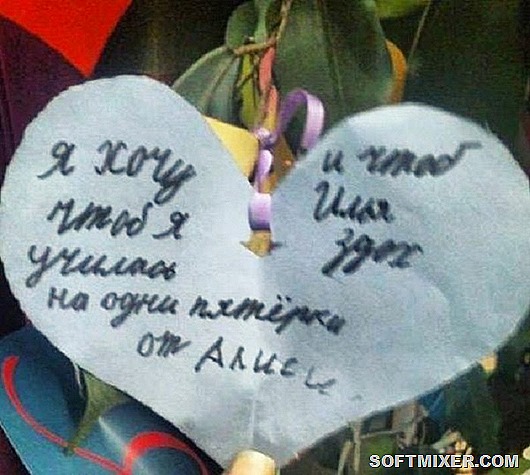 я хочу
чтоб я
училась
на одни пятёрки
от Алисы
и чтоб
Илья
здох
SOFTMIXER.COM